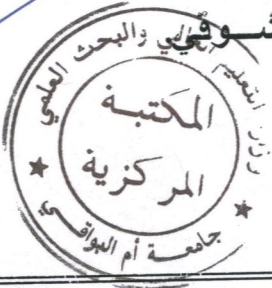 شوفي
وزارة التعليم العالي والبحث العلمي
المكتبة
المركزية
جامعة أم البواقي